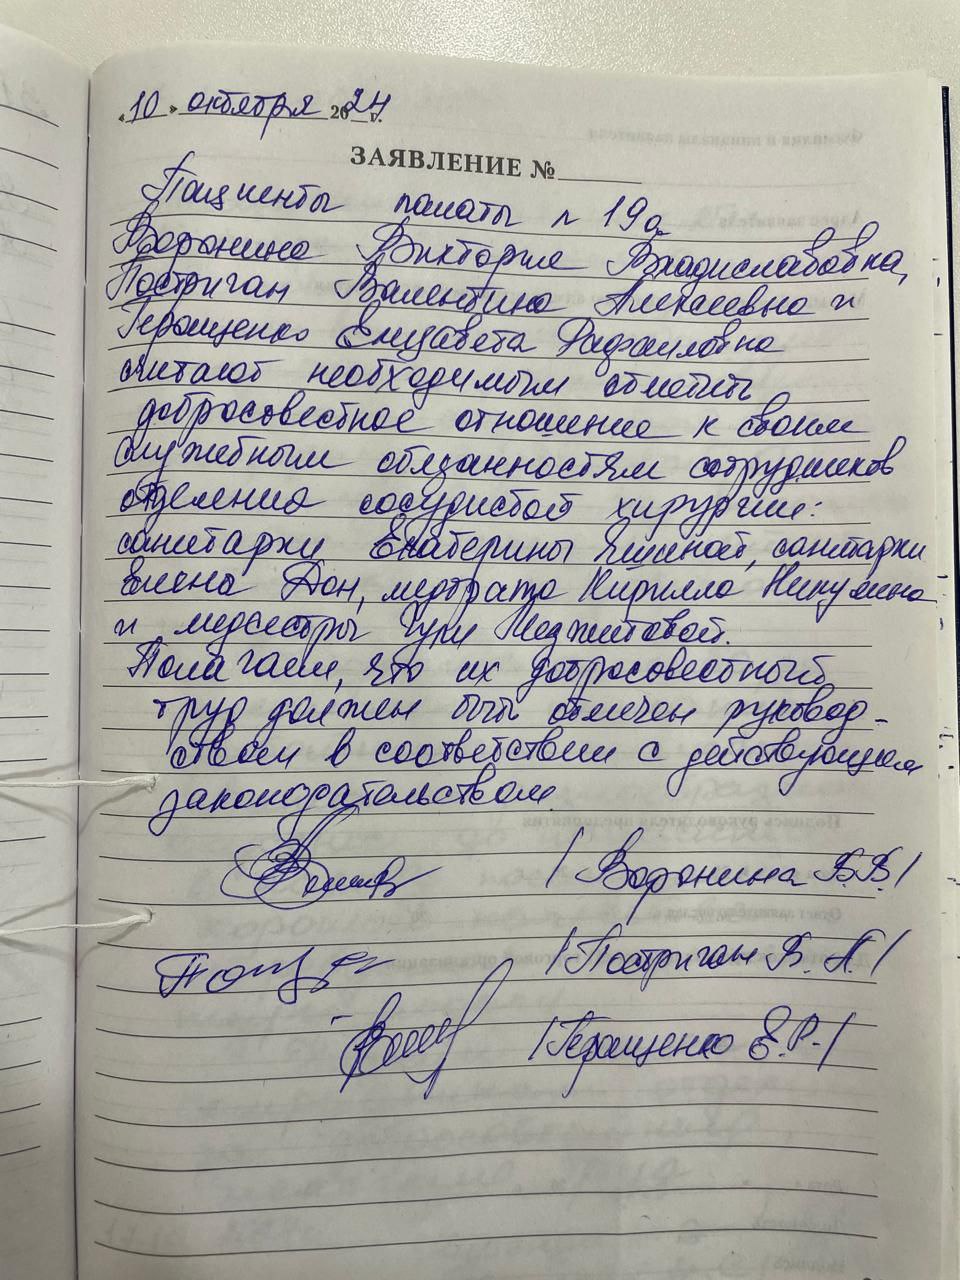 «10» октября 2024 г.
ЗАЯВЛЕНИЕ №
Пациенты палаты n 19а
Воронина Виктория Владиславовна,
Постриган Валентина Алексеевна и
Геращенко Елизавета Рафаиловна
считают необходимым отметить
добросовестное отношение к своим
служебным обязанностям сотрудников
отделения сосудистой хирургии:
санитарки Екатерины Яшиной, санитарки
Елена Дон, медбрата Кирилла Никулина
и медсестры Гули Меджитовой.
Полагаем, что их добросовестный
труд должен быть отмечен руковод-
ством в соответствии с действующем
законодательством.
/ Воронина В.В. /
/ Постриган В. А. /
/ Геращенко Е.Р. /